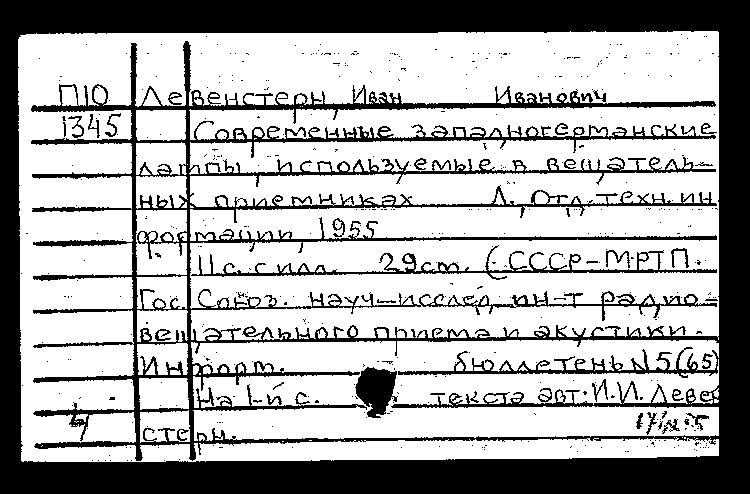 П10 Левенстерн, Иван Иванович
1345 Современные западногерманские
лампы, используемые в вещатель-
ных приемниках Л., Отд. техн. ин
формации, 1955
11 с. с илл. 29 см. (СССР-МРТП.
Гос. Союз. науч-исслед. ин-т радио-
вещательного приема и акустики.
Информ. бюллетень N 5(65)
На 1-й с. текста авт: И.И. Левен
стерн.